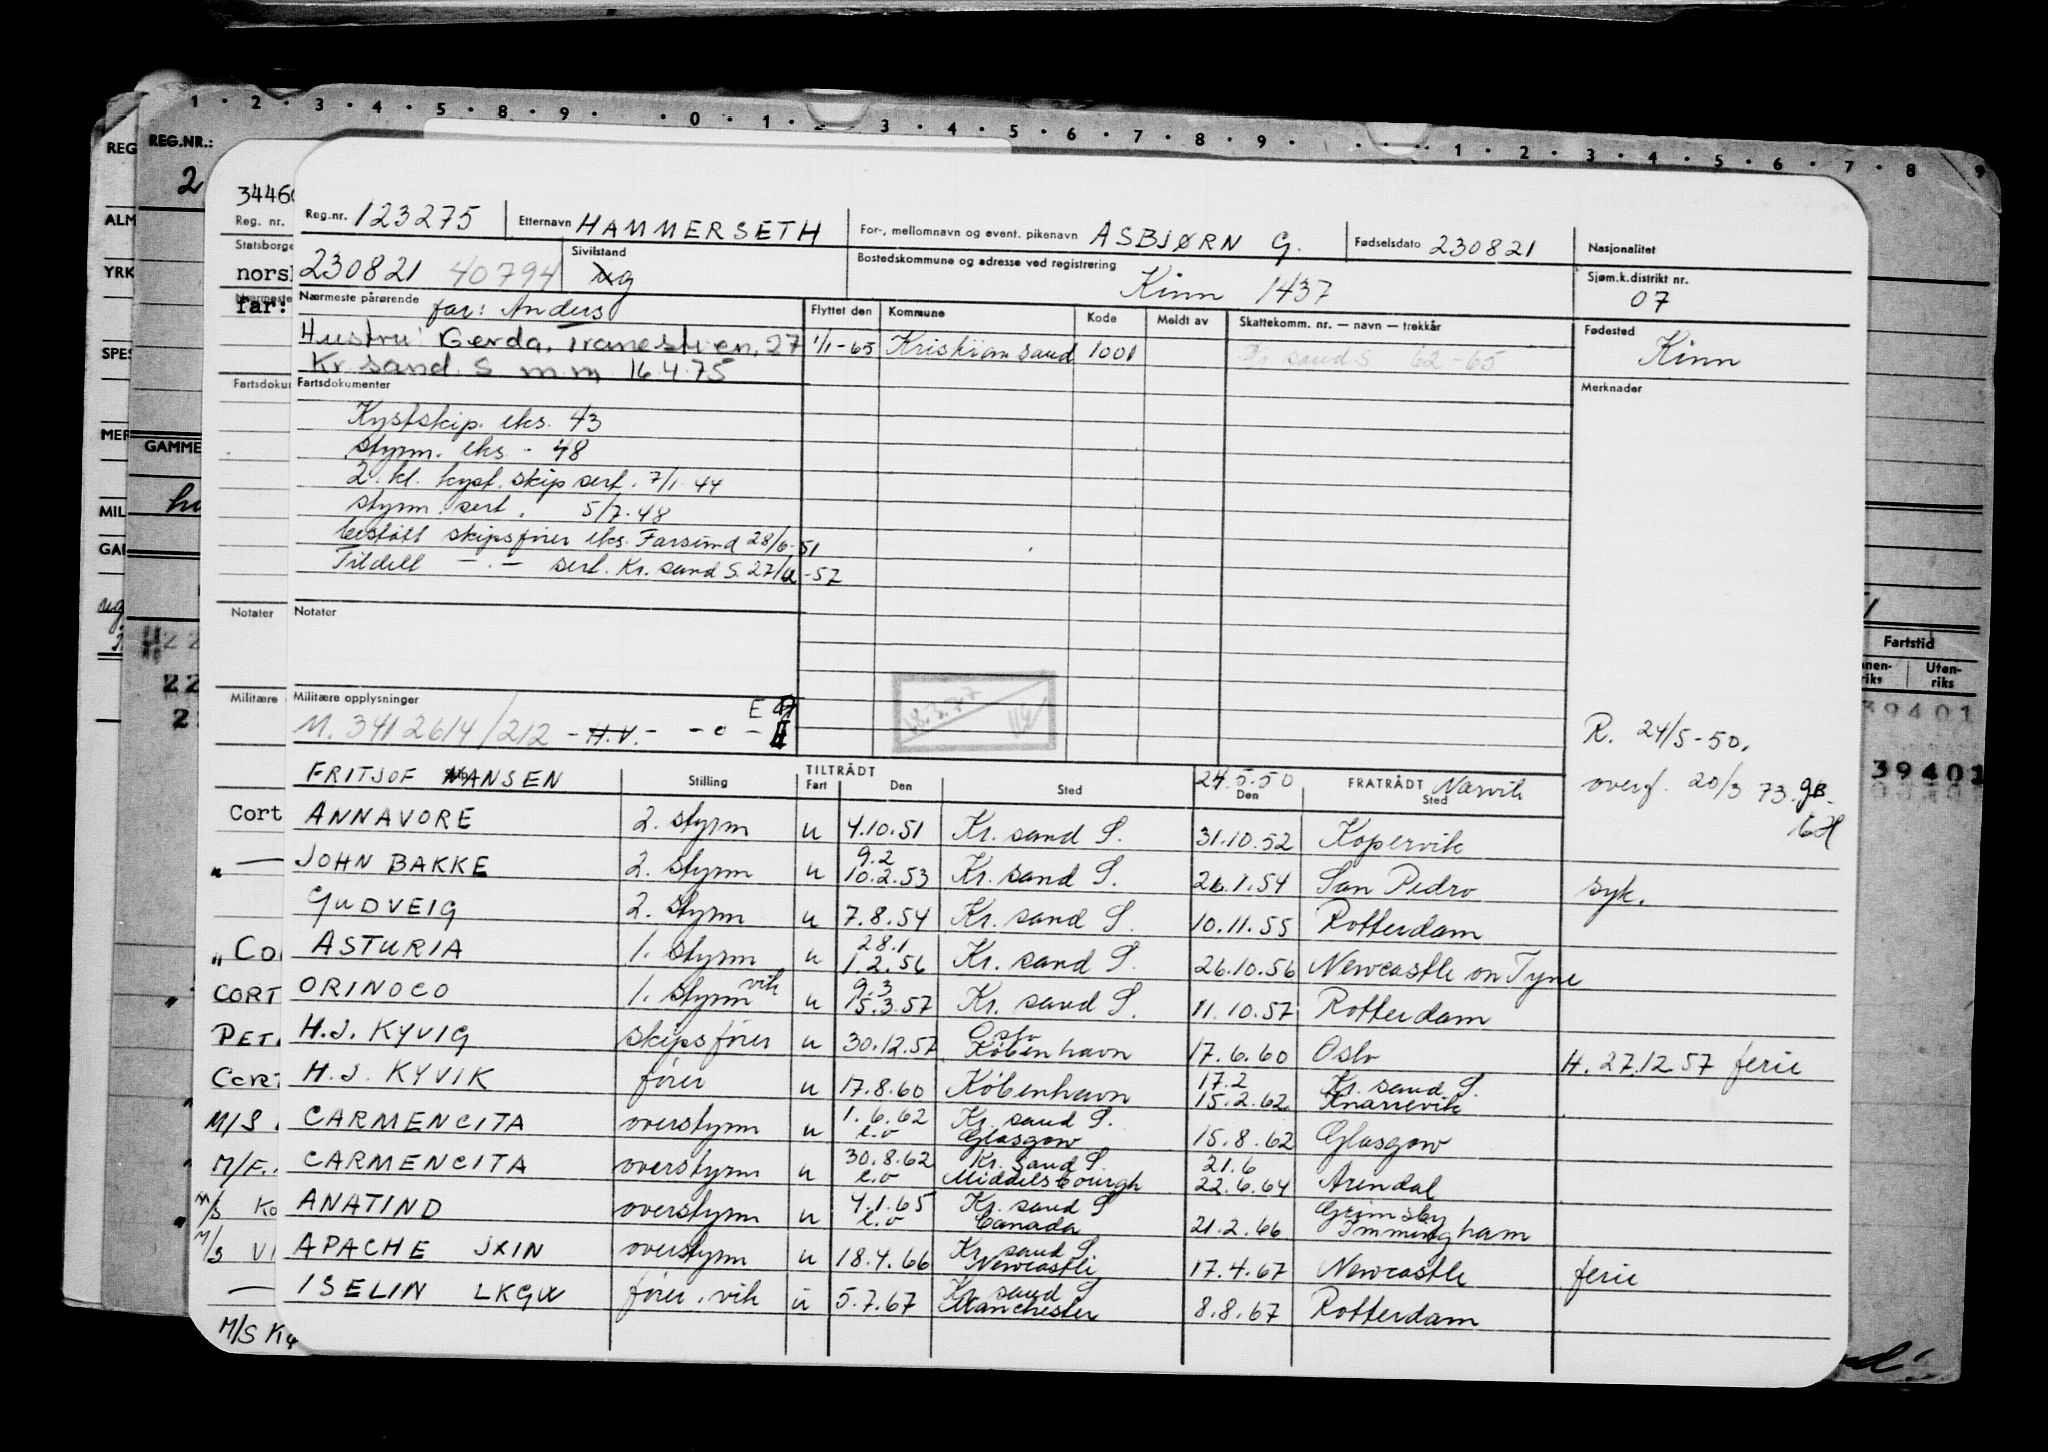 1 · 2 · 3 · 4 · 5 · 8 · 9 · · 0 · 1 · 2 · 3 · 4 · 5 · 6 · 7 · 8 · 9 · · · · · 1 · 2 · 3 · 4 · 5 · 6 · 7 · 8 9
REG REG.NR.:
2
34460
Reg. nr.
Reg.nr. 123275 Etternavn HAMMERSETH For-, mellomnavn og event. pikenavn ASBJØRN G. Fødselsdato 230821 Nasjonalitet
Statsborge
norsk
230821 40794 Sivilstand ug Bostedskommune og adresse ved registrering Kinn 1437 Sjøm.k.distrikt nr. 07
far:
Nærmeste pårørende far: Anders Flyttet den Kommune Kode Meldt av Skattekomm. nr. — navn — trekkår Fødested Kinn
Hustru: Gerda, Tranestien 27 1/1-65 Kristiansand 1001 Kr sand S 62-65
Kr. sand. S m.m 16.4.75
Fartsdoku Fartsdokumenter Merknader
Kystskip. eks. 43
styrm. eks. - 48
2. kl. kyst. skip sert. 7/1 44
styrm. sert. 5/7-48
bestått skipsfører eks. Farsund 28/6-51
Tildelt — . — sert. Kr. sand S. 27/ -57
ALM
YRK
SPES
MER
GAMME
MIL
GAI
Notater Notater
Militære Militære opplysninger
M. 3412614/212 - H.V. -
R. 24/5-50.
overf. 20/3 73. gB.
Fartstid
Uten-
riks
39401
39401
FRITJOF NANSEN Stilling TILTRÅDT Fart Den Sted 24.5.50 Den FRATRÅDT Narvik Sted
Cort ANNAVORE 2. styrm u 4.10.51 Kr. sand S. 31.10.52 Kopervik
" — JOHN BAKKE 2. styrm u 9.2 10.2.53 Kr. sand S. 26.1.54 San Pedro syk.
GUDVEIG 2. styrm u 7.8.54 Kr. sand S. 10.11.55 Rotterdam
ASTURIA 1. styrm u 28.1 1.2.56 Kr. sand S. 26.10.56 Newcastle on Tyne
CORT ORINOCO 1. styrm vik u 9.3 15.3.57 Kr. sand S. 11.10.57 Rotterdam
PET H.J. KYVIG skipsfører u 30.12.57 Oslo København 17.6.60 Oslo H. 27.12 57 ferie
CORT H.J. KYVIK fører u 17.8.60 København 17.2 15.2.62 Kr. sand S. Knarrevik
M/S CARMENCITA overstyrm u 1.6.62 l.o Kr. sand S. Glasgow 15.8.62 Glasgow
M/F. CARMENCITA overstyrm u 30.8.62 l.o Kr. sand S. Middelsbourgh 21.6 22.6.64 Arendal
M/S Ko ANATIND overstyrm u 4.1.65 l.o Kr. sand S Canada 21.2.66 Grimsby Immingham
M/S VI APACHE JXIN overstyrm u 18.4.66 Kr. sand S. Newcastle 17.4.67 Newcastle ferie
— ISELIN LKGW fører. vik u 5.7.67 Kr. sand S Manchester 8.8.67 Rotterdam
M/S